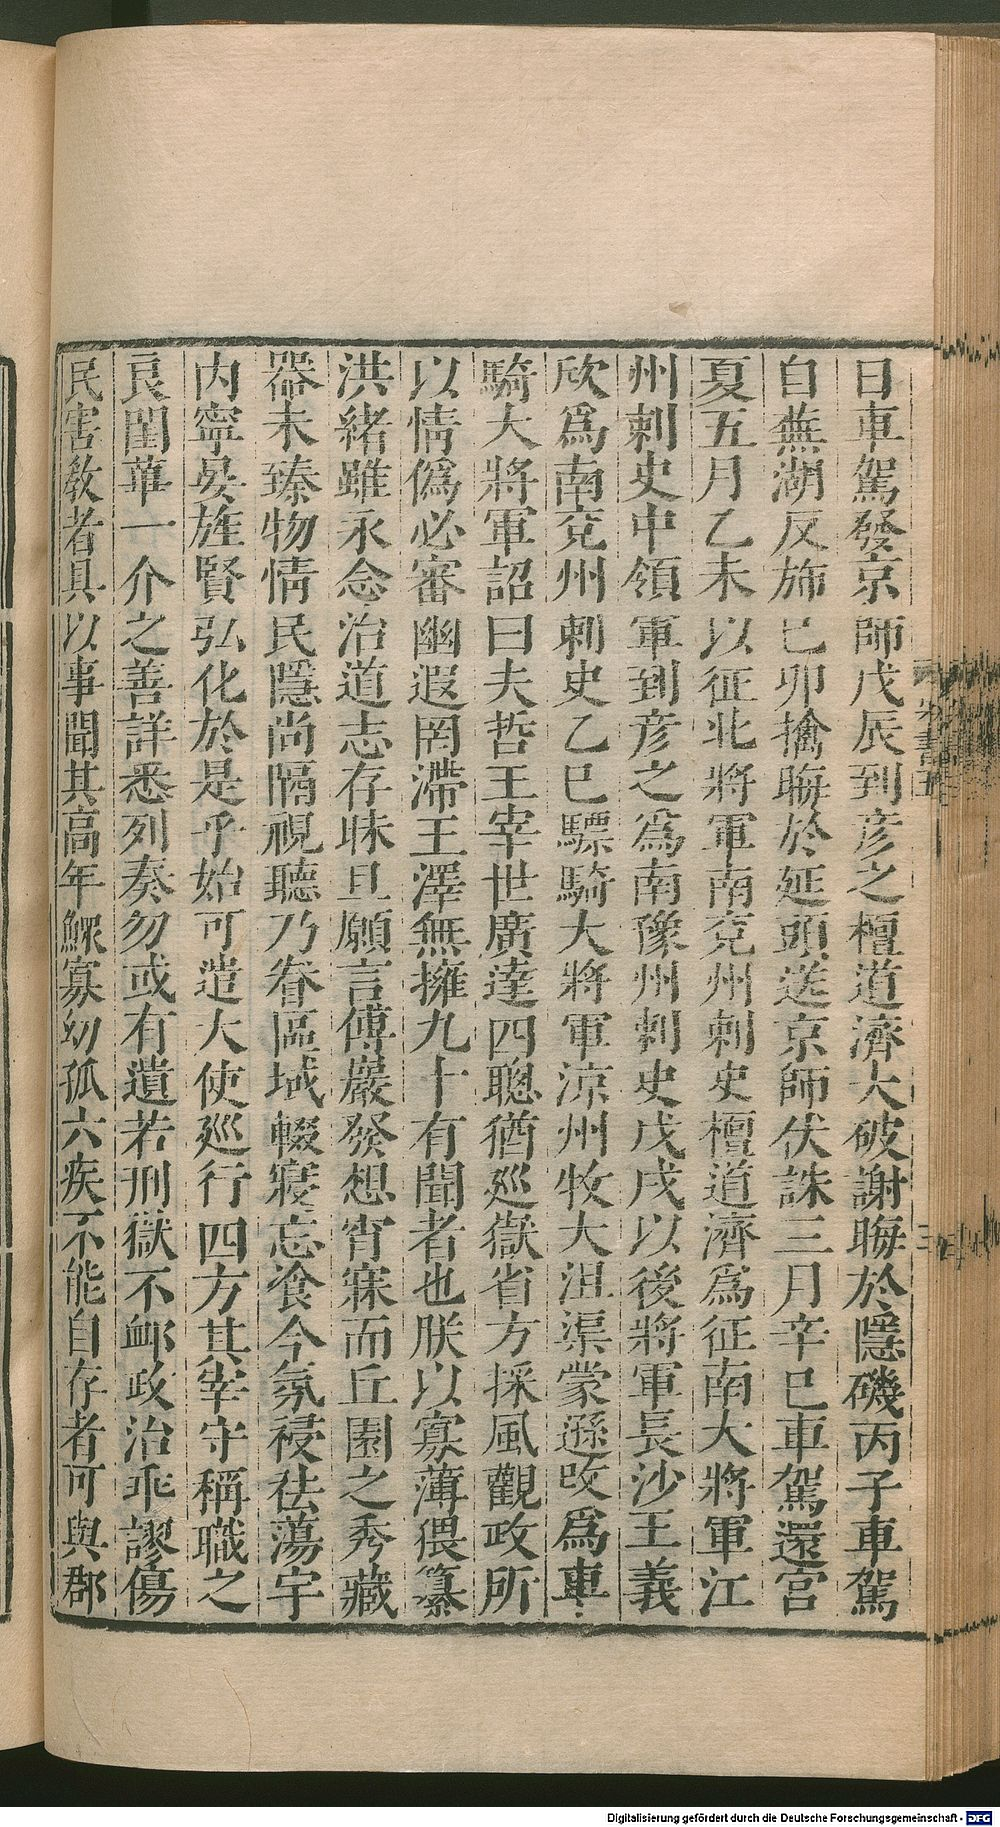 日車駕發京師戊辰到彦之檀道濟大破謝晦於隱磯丙子車駕
自蕪湖反斾己卯擒晦於延頭送京師伏誅三月辛巳車駕還宮
夏五月乙未以征北將軍南兖州刺史檀道濟爲征南大將軍江
州刺史中領軍到彦之爲南豫州刺史戊戌以後將軍長沙王義
欣爲南兖州刺史乙巳驃騎大將軍涼州牧大沮渠蒙遜改爲車
騎大將軍詔曰夫哲王宰世廣達四聰猶巡嶽省方採風觀政所
以情僞必審幽遐罔滯王澤無擁九十有聞者也朕以寡薄猥纂
洪緒雖永念治道志存昧旦願言傅巖發想宵寐而丘園之秀藏
器未臻物情民隱尚隔視聽乃眷區域輟寢忘飡今氛祲祛蕩宇
内寧晏旌賢弘化於是乎始可遣大使巡行四方其宰守稱職之
良閨蓽一介之善詳悉列奏勿或有遺若刑獄不衈政治乖謬傷
民害敎者具以事聞其高年鰥寡幼孤六疾不能自存者可與郡
Digitalisierung gefördert durch die Deutsche Forschungsgemeinschaft - DFG